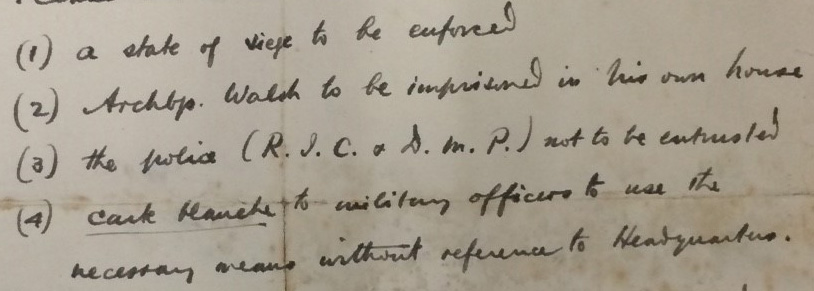 (1) a state of siege to be enforced
(2) Archbp. Walsh to be imprisoned in his own house
(3) the police (R.I.C. & D.M.P.) not to be entrusted
(4) carte blanche to military officers to use the
necessary means without reference to Headquarters.